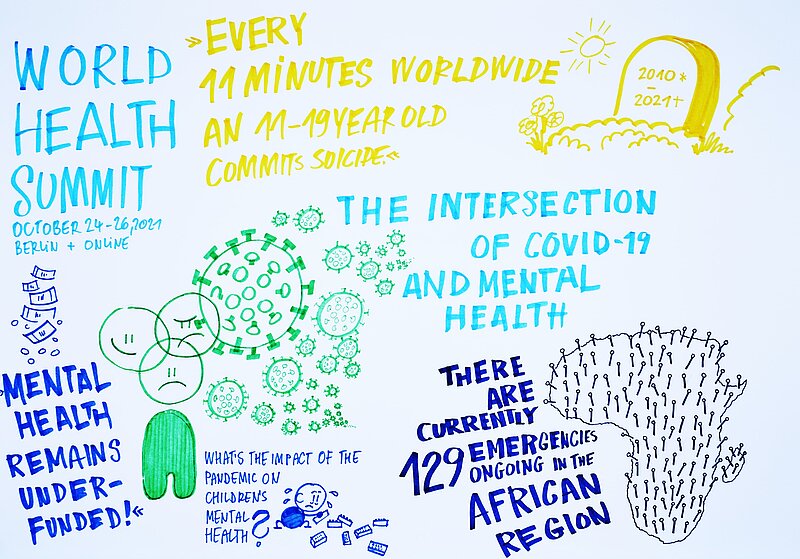 WORLD
HEALTH
SUMMIT
OCTOBER 24-26, 2021
BERLIN + ONLINE
»EVERY
11 MINUTES WORLDWIDE
AN 11-19 YEAR OLD
COMMITS SUICIDE.«
2010*
-
2021†
THE INTERSECTION
OF COVID-19
AND MENTAL
HEALTH
MENTAL
HEALTH
REMAINS
UNDER-
FUNDED!«
WHAT'S THE IMPACT OF THE
PANDEMIC ON
CHILDRENS
MENTAL
HEALTH?
THERE
ARE
CURRENTLY
129 EMERGENCIES
ONGOING IN THE
AFRICAN
REGION